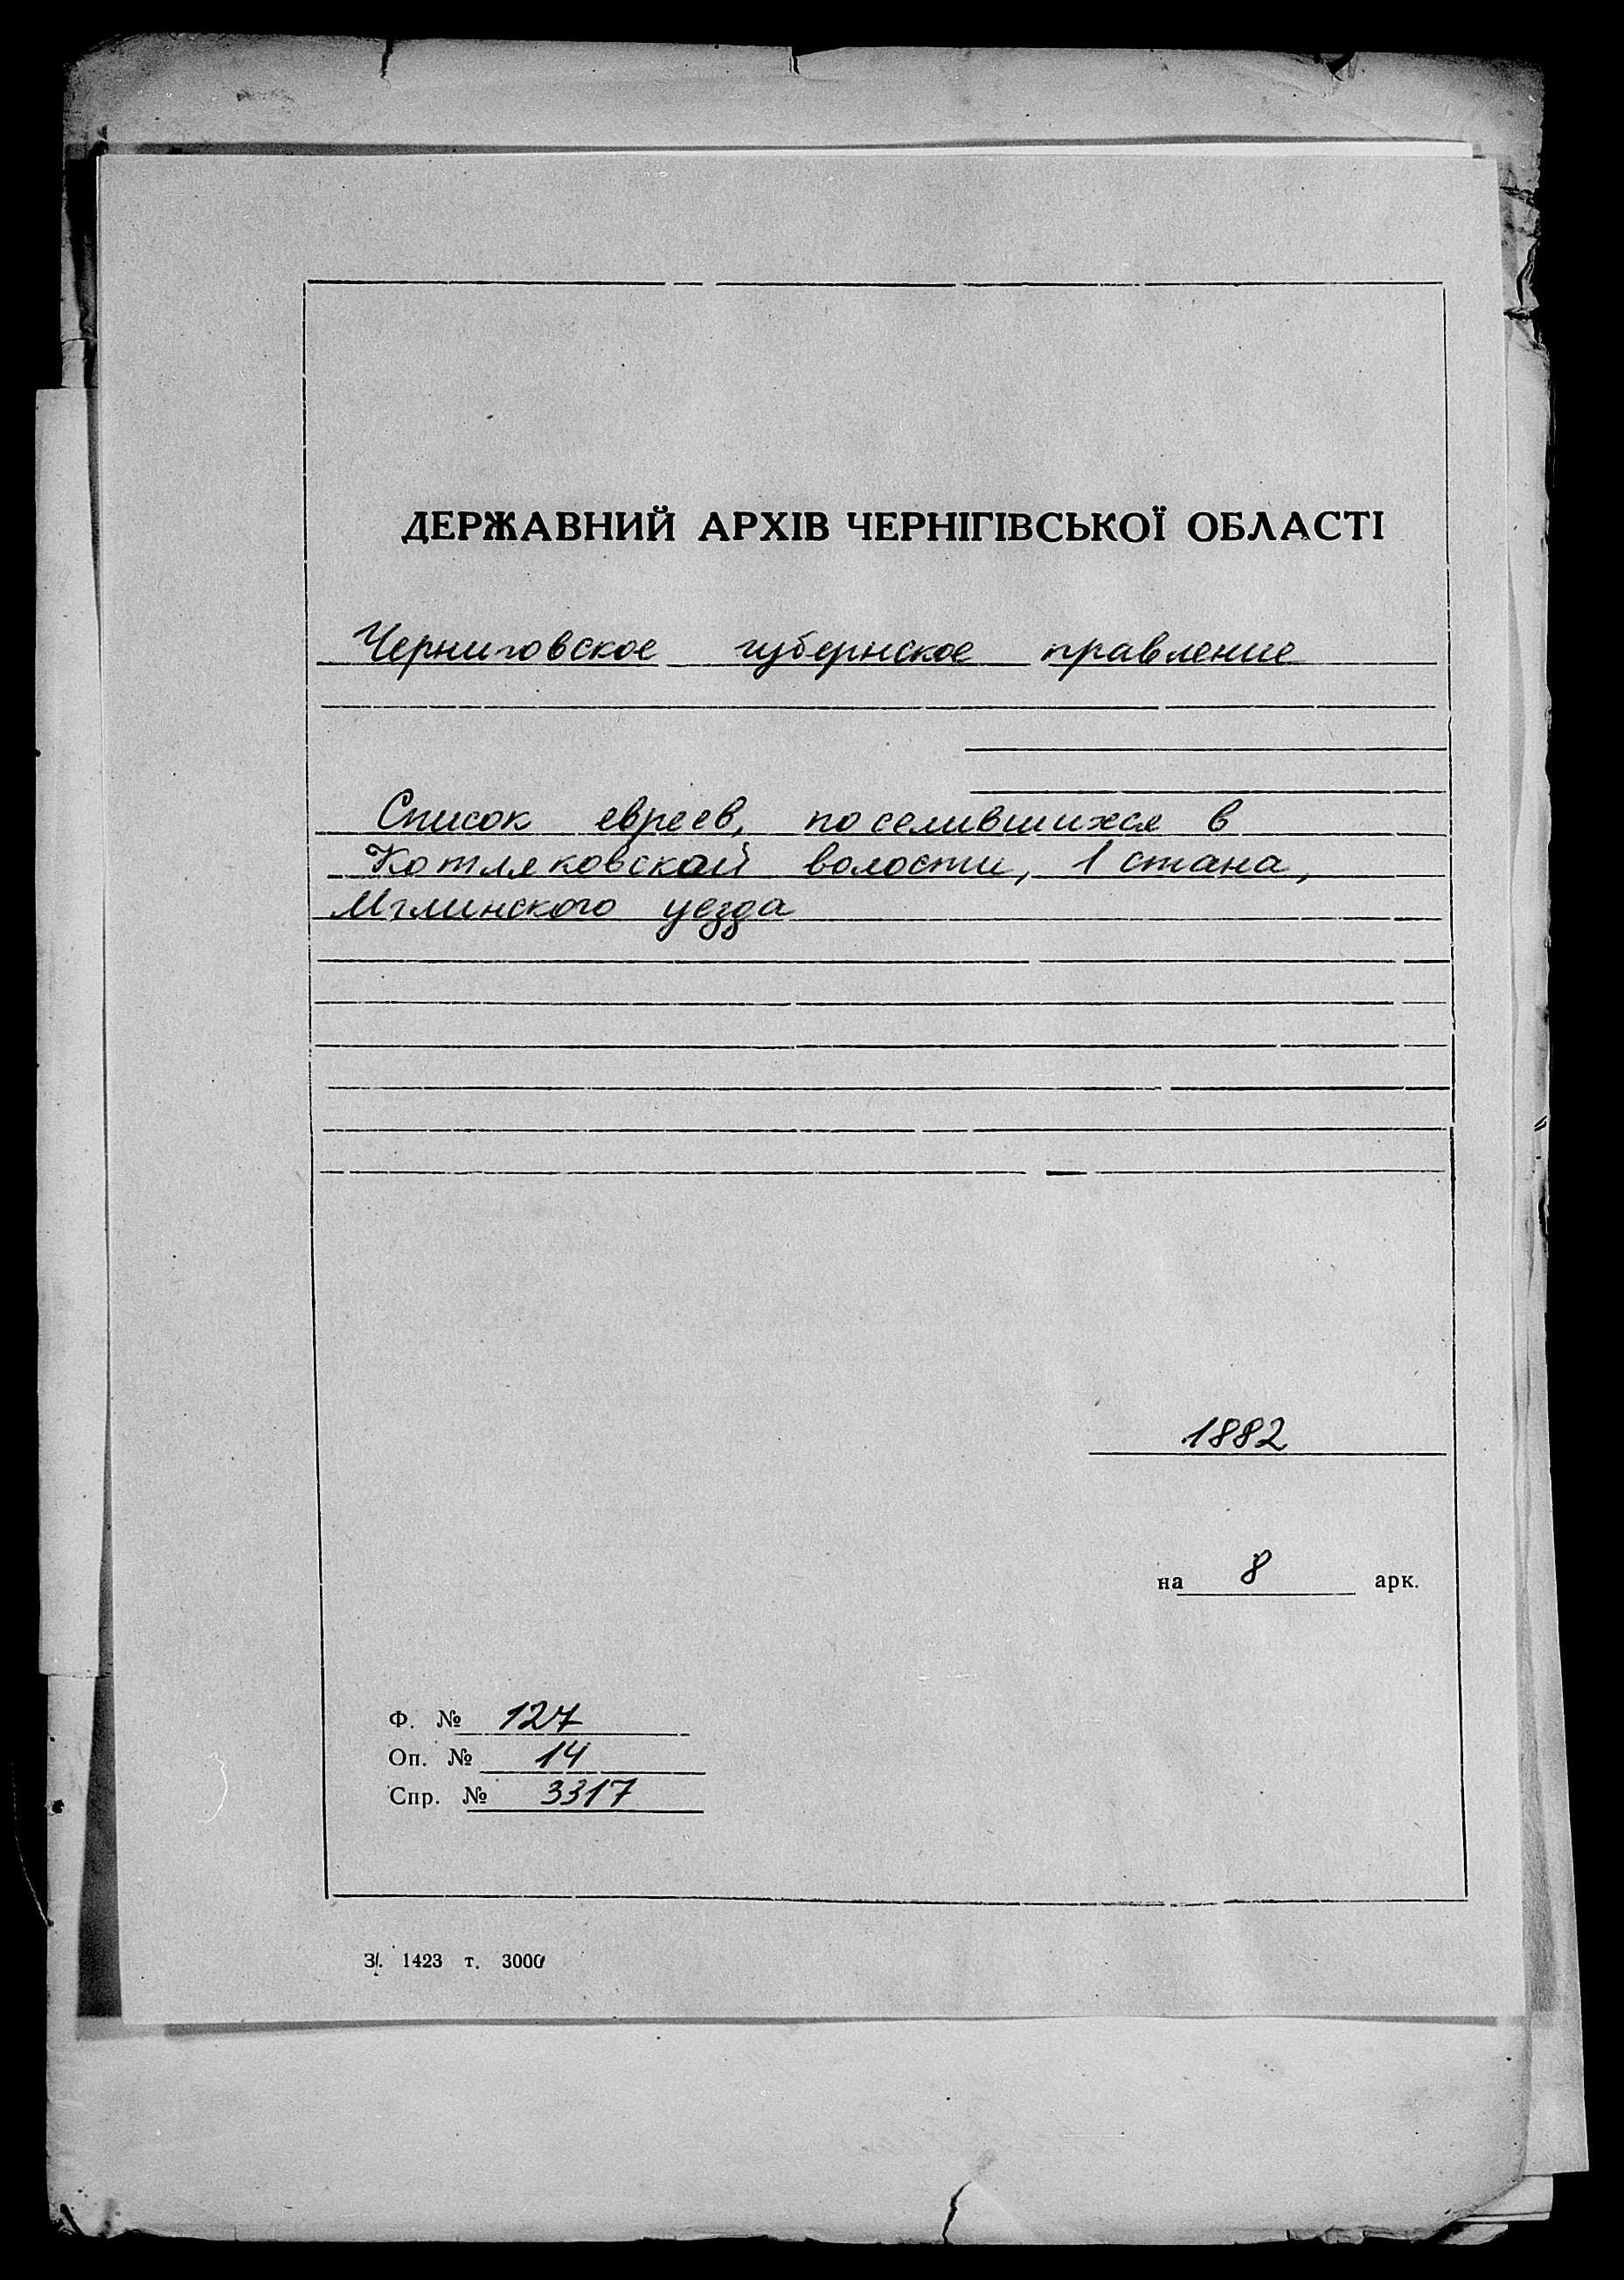 ДЕРЖАВНИЙ АРХІВ ЧЕРНІГІВСЬКОЇ ОБЛАСТІ
Черниговское губернское правление
Список евреев, поселившихся в
Котляковской волости, 1 стана,
Мглинского уезда
1882
на 8 арк.
Ф. № 127
Оп. № 14
Спр. № 3317
З. 1423 т. 3000